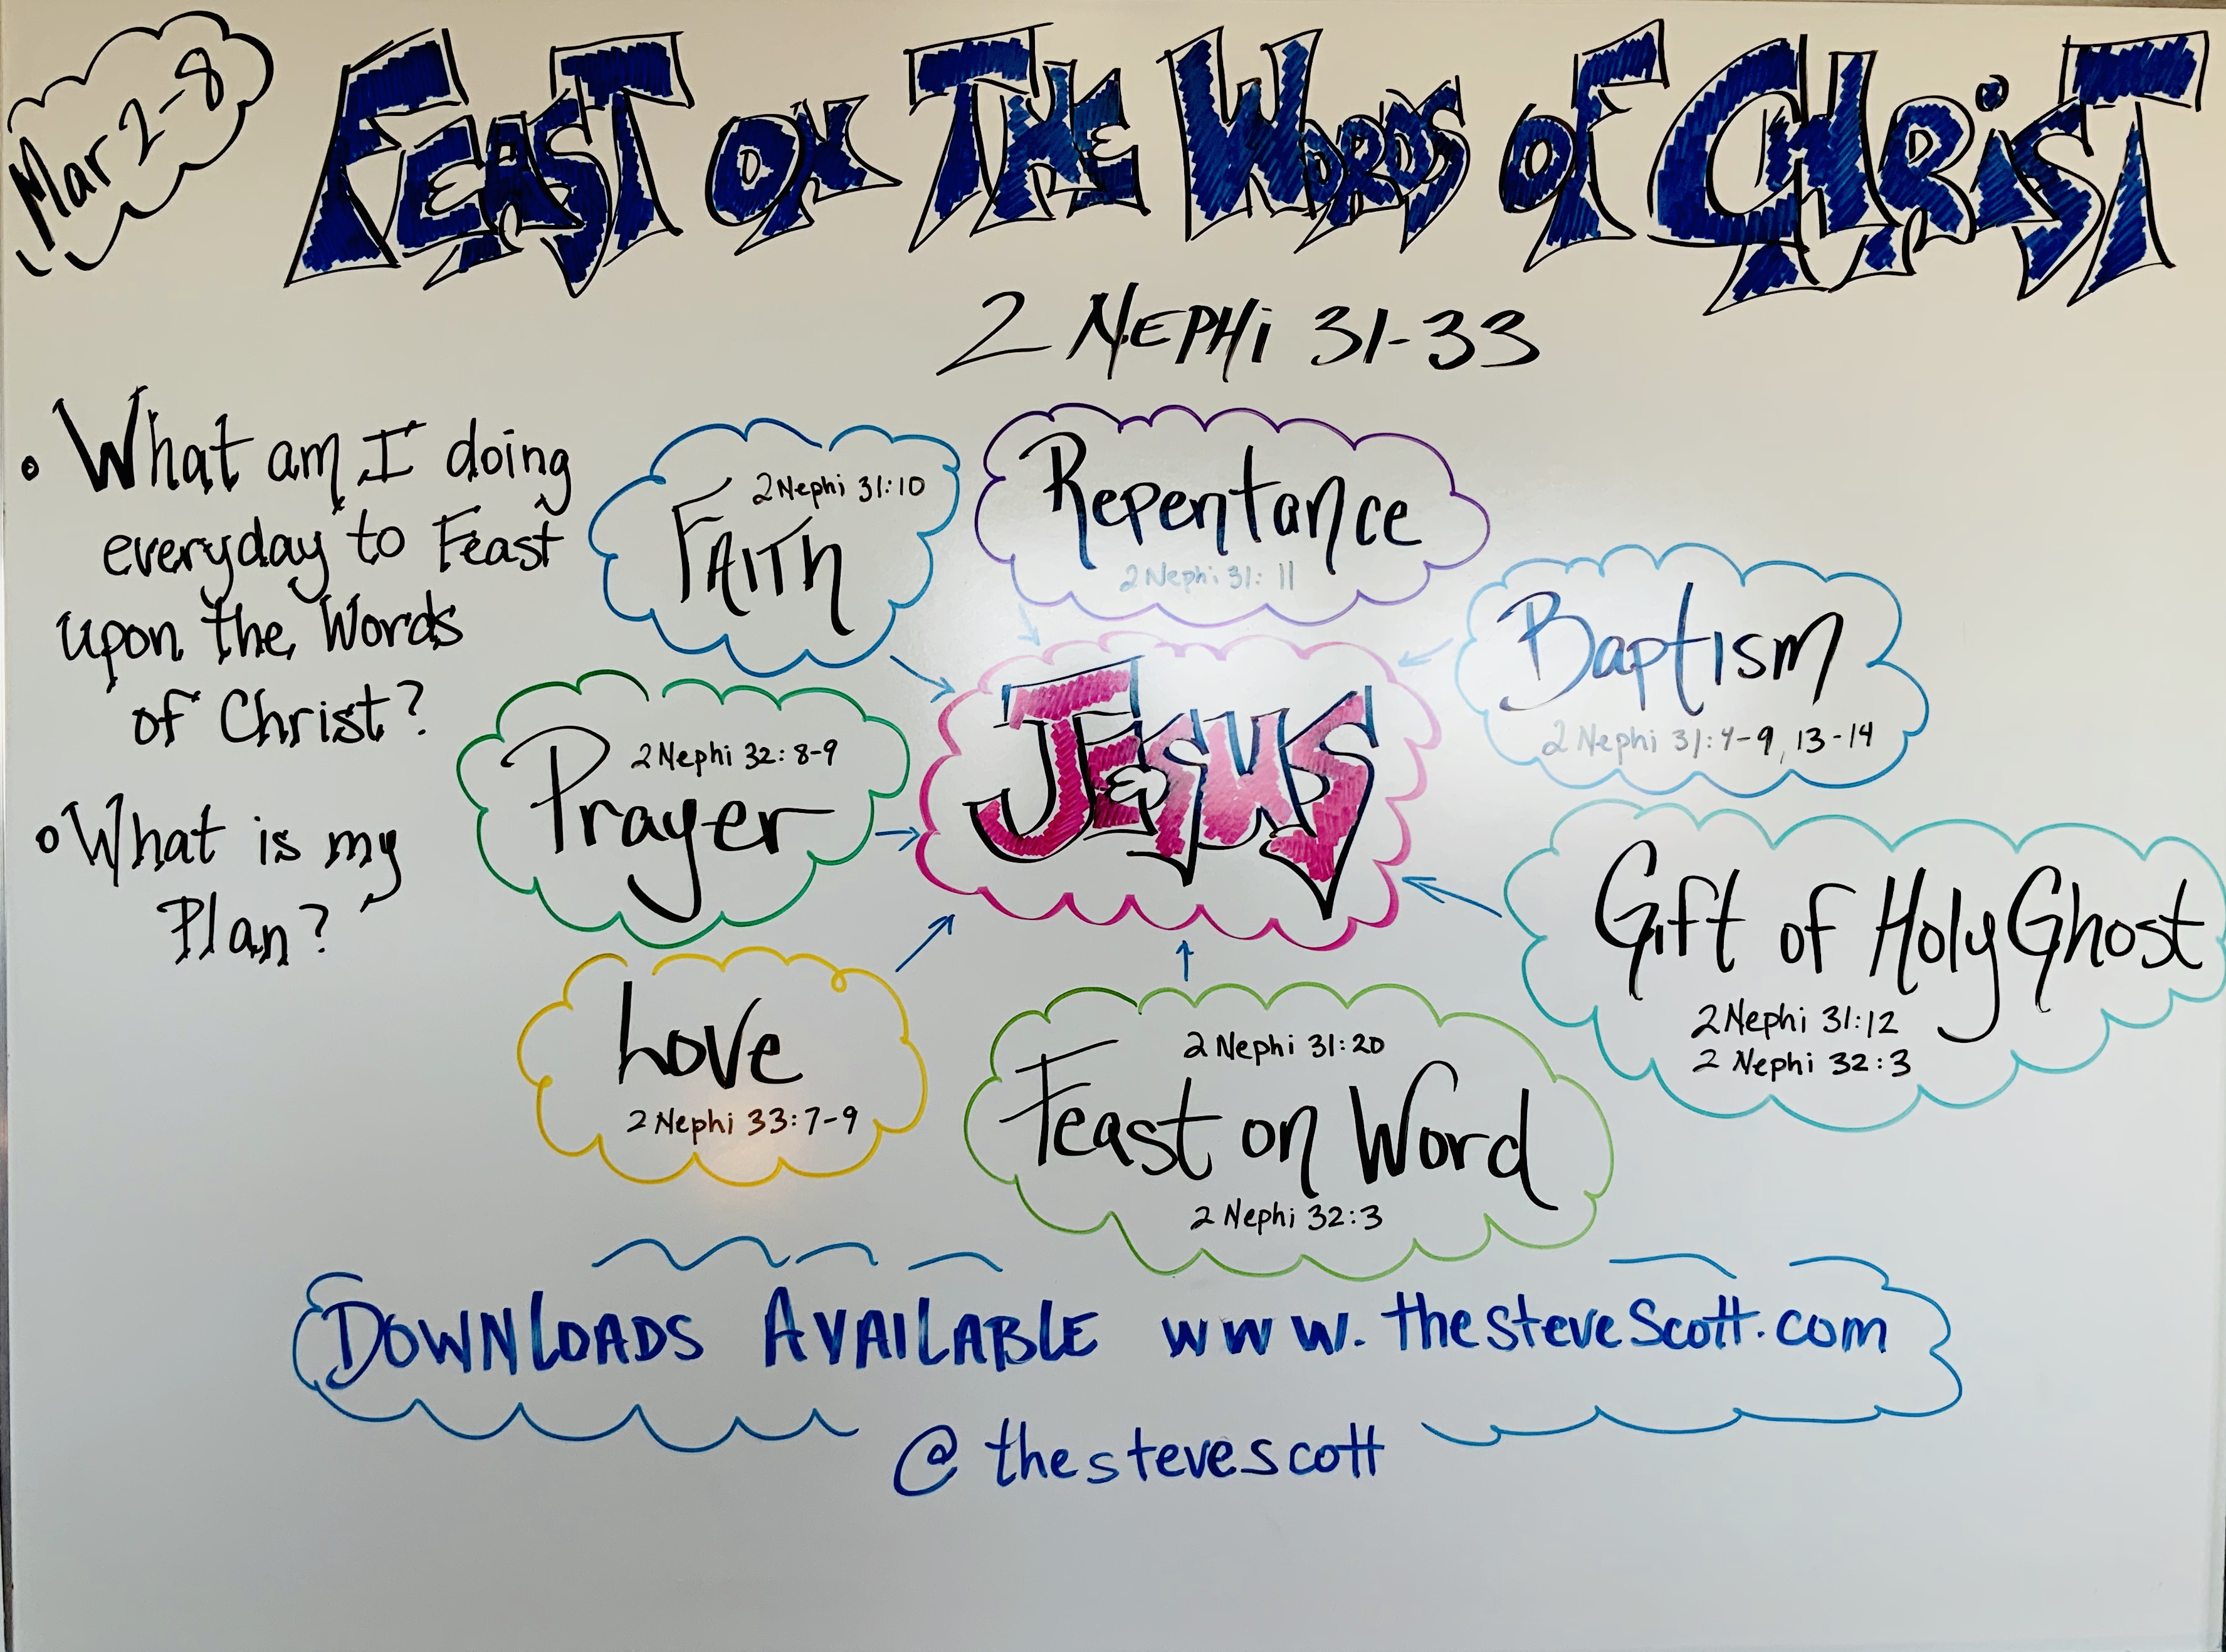 Mar 2-8
FEAST ON THE WORDS OF CHRiST
2 NEPHi 31-33
• What am I doing
everyday to Feast
upon the Words
of Christ?
• What is my
Plan?
2 Nephi 31:10
FAITh
Repentance
2 Nephi 31: 11
Baptism
2 Nephi 31:4-9, 13-14
2 Nephi 32: 8-9
Prayer
JESUS
Gift of Holy Ghost
2 Nephi 31:12
2 Nephi 32:3
Love
2 Nephi 33:7-9
2 Nephi 31:20
Feast on Word
2 Nephi 32:3
DOWNLOADS AVAILABLE www.thesteveScott.com
@ thestevescott